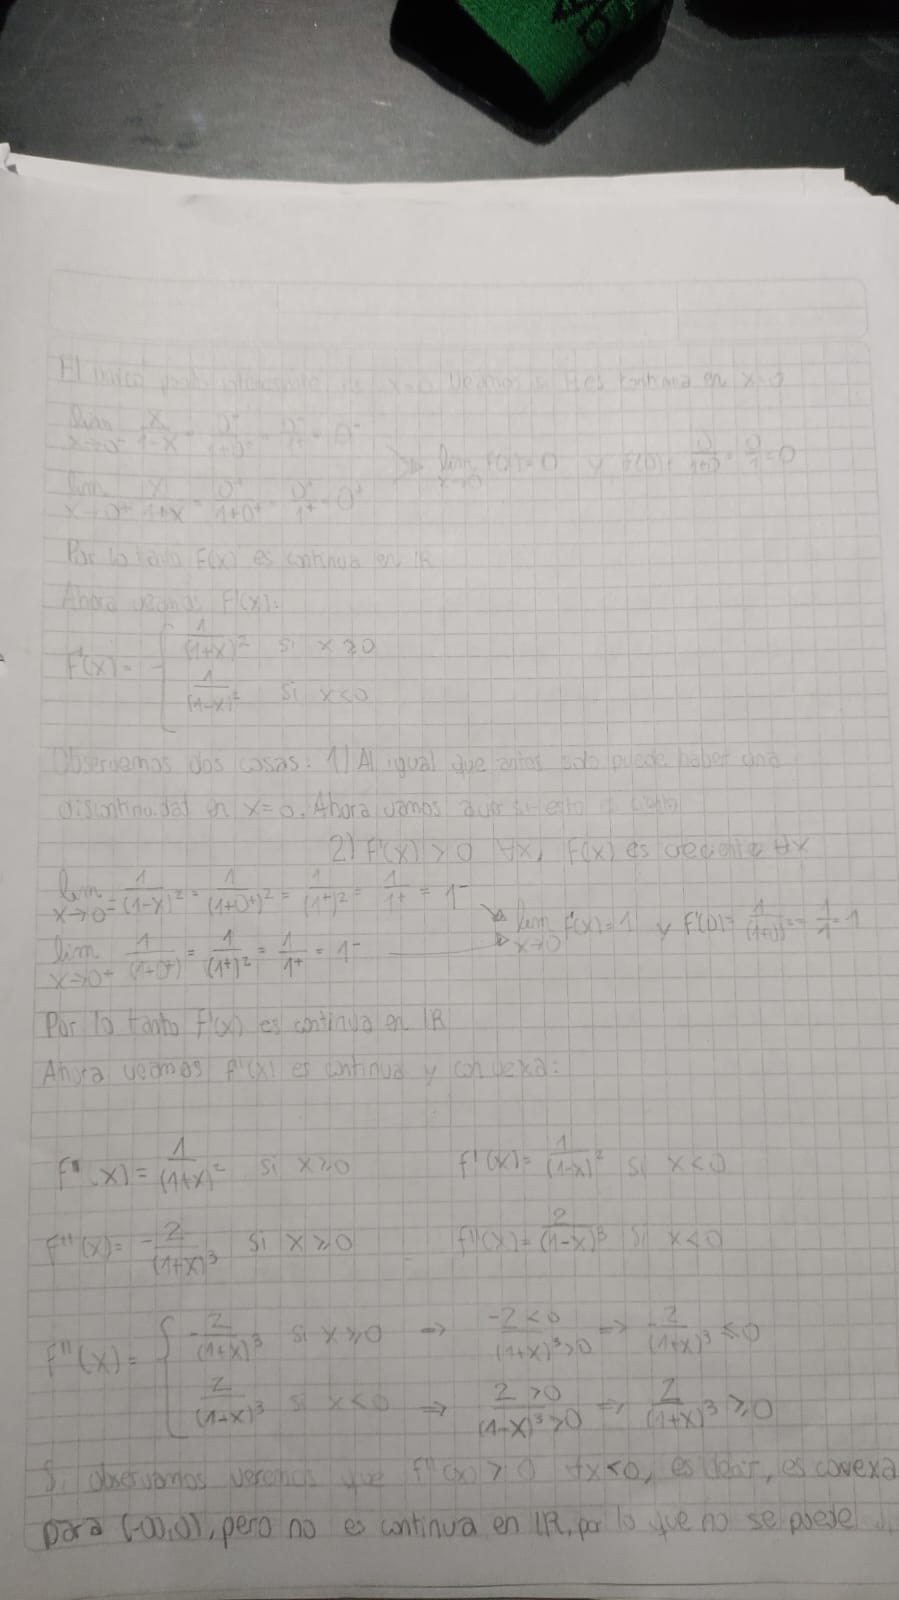 El único punto interesante es x=0. Veamos si f es continua en x=0
lim x→0⁻ x/(1-x) = 0⁻/(1+0⁺) = 0⁻/1⁺ = 0⁻
lim x→0⁺ x/(1+x) = 0⁺/(1+0⁺) = 0⁺/1⁺ = 0⁺
⇒ lim x→0 f(x) = 0 y f(0) = 0/(1+0) = 0/1 = 0
Por lo tanto f(x) es continua en ℝ
Ahora veamos f'(x):
f'(x) = { 1/(1+x)² si x≥0
1/(1-x)² si x<0
Observemos dos cosas: 1) Al igual que antes solo puede haber una
discontinuidad en x=0. Ahora vamos a ver si esto es cierto
2) f'(x) > 0 ∀x, f(x) es creciente ∀x
lim x→0⁻ = 1/(1-x)² = 1/(1+0⁺)² = 1/(1⁺)² = 1/1⁺ = 1⁻
lim x→0⁺ 1/(1+0⁺) = 1/(1⁺)² = 1/1⁺ = 1⁻
lim x→0 f'(x) = 1 y f'(0) = 1/(1+0)² = 1/1 = 1
Por lo tanto f'(x) es continua en ℝ
Ahora veamos f''(x) es continua y convexa:
f''(x) = 1/(1+x)² si x≥0 f'(x) = 1/(1-x)² si x<0
f''(x) = -2/(1+x)³ si x≥0 f''(x) = 2/(1-x)³ si x<0
f''(x) = { -2/(1+x)³ si x≥0 ⇒ -2<0/(1+x)³>0 ⇒ -2/(1+x)³ ≤0
2/(1-x)³ si x<0 ⇒ 2>0/(1-x)³>0 ⇒ 2/(1+x)³ ≥0
Si observamos veremos que f''(x) ≥ 0 ∀x<0, es decir, es convexa
para (-∞,0), pero no es continua en ℝ, por lo que no se puede